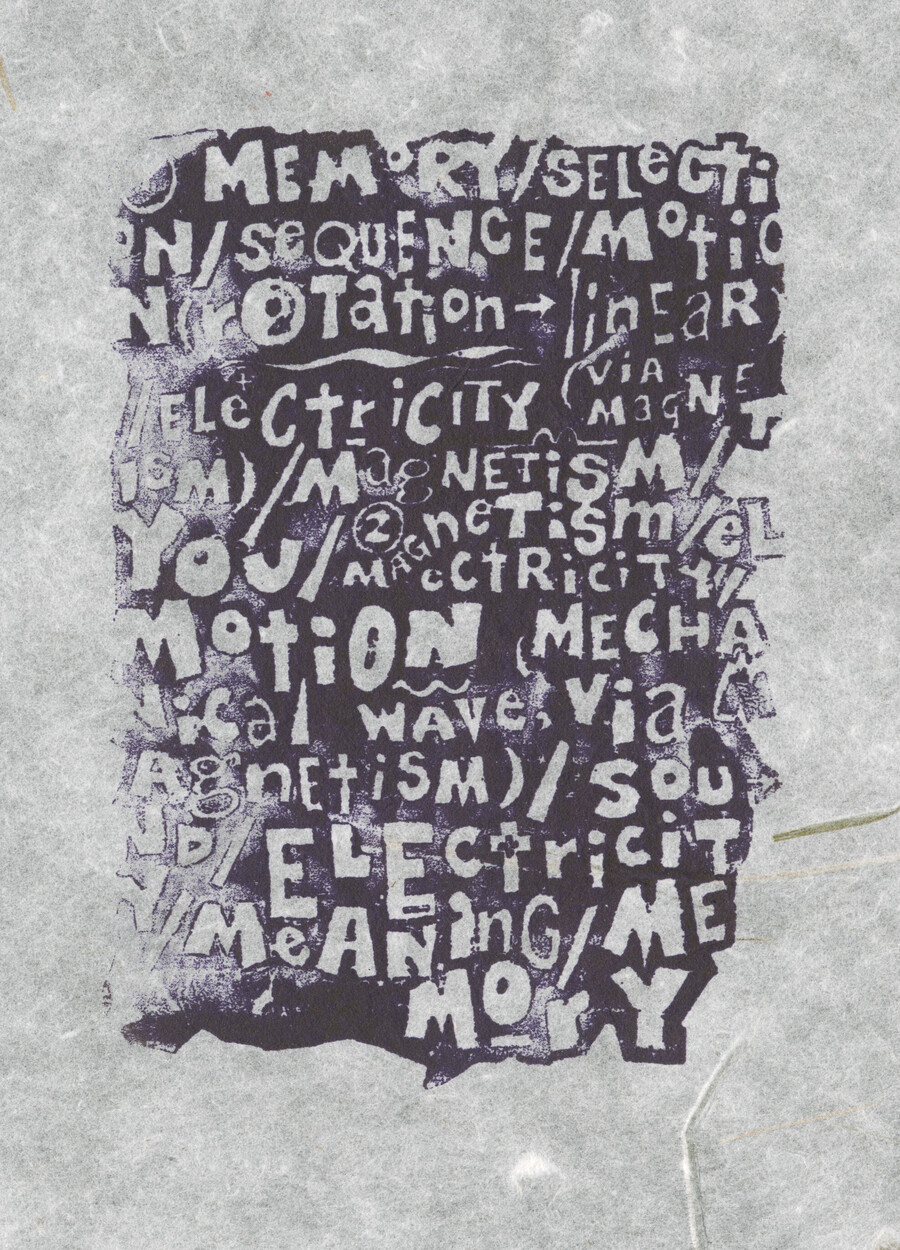 MEMoRY/SELeCti
ON/SeQUENCE/Motio
N(rOTation→linEaR)
/ELeCtriCITY (via MagNET
iSM)/MagNETiSM/
You/② MAgneTiSm/eL
eCTRiCiTY//
MotiON (MECHA
Nical WAVe, Via
MAgnEtiSM)/Sou
ND/ELECtriciT
Y/MeANinG/ME
MOrY